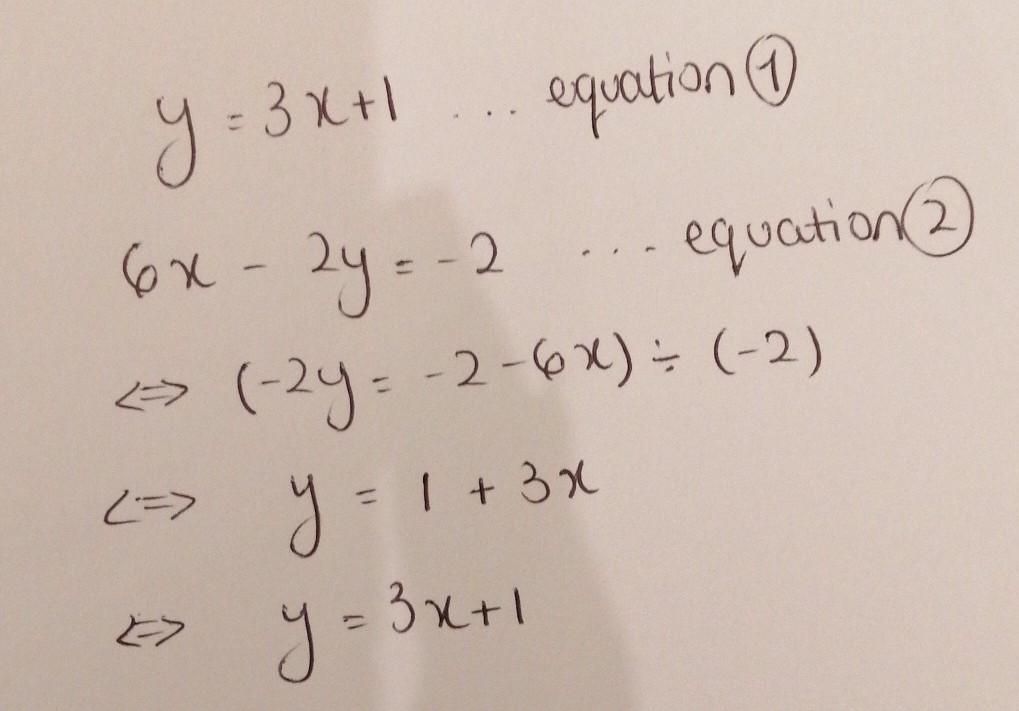 y = 3x+1 .... equation ①
6x - 2y = -2 .... equation ②
<=> (-2y = -2 - 6x) ÷ (-2)
<=> y = 1 + 3x
<=> y = 3x+1